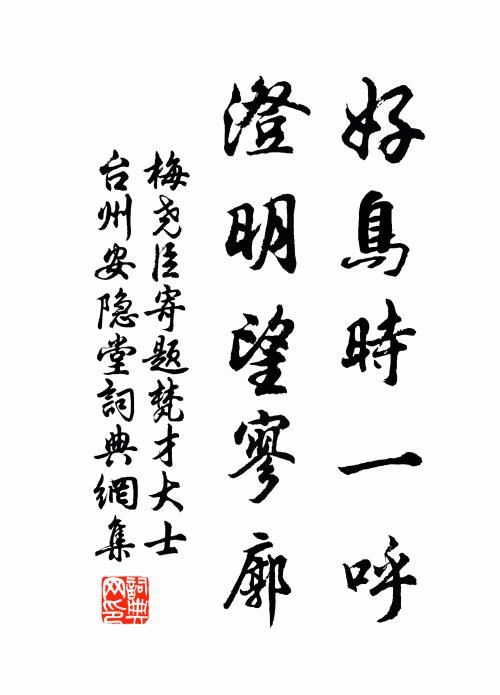 好鳥時一呼
澄明望寥廓
梅尧臣寄題梵才大士
台州安隐堂詞典網集
詞典網印